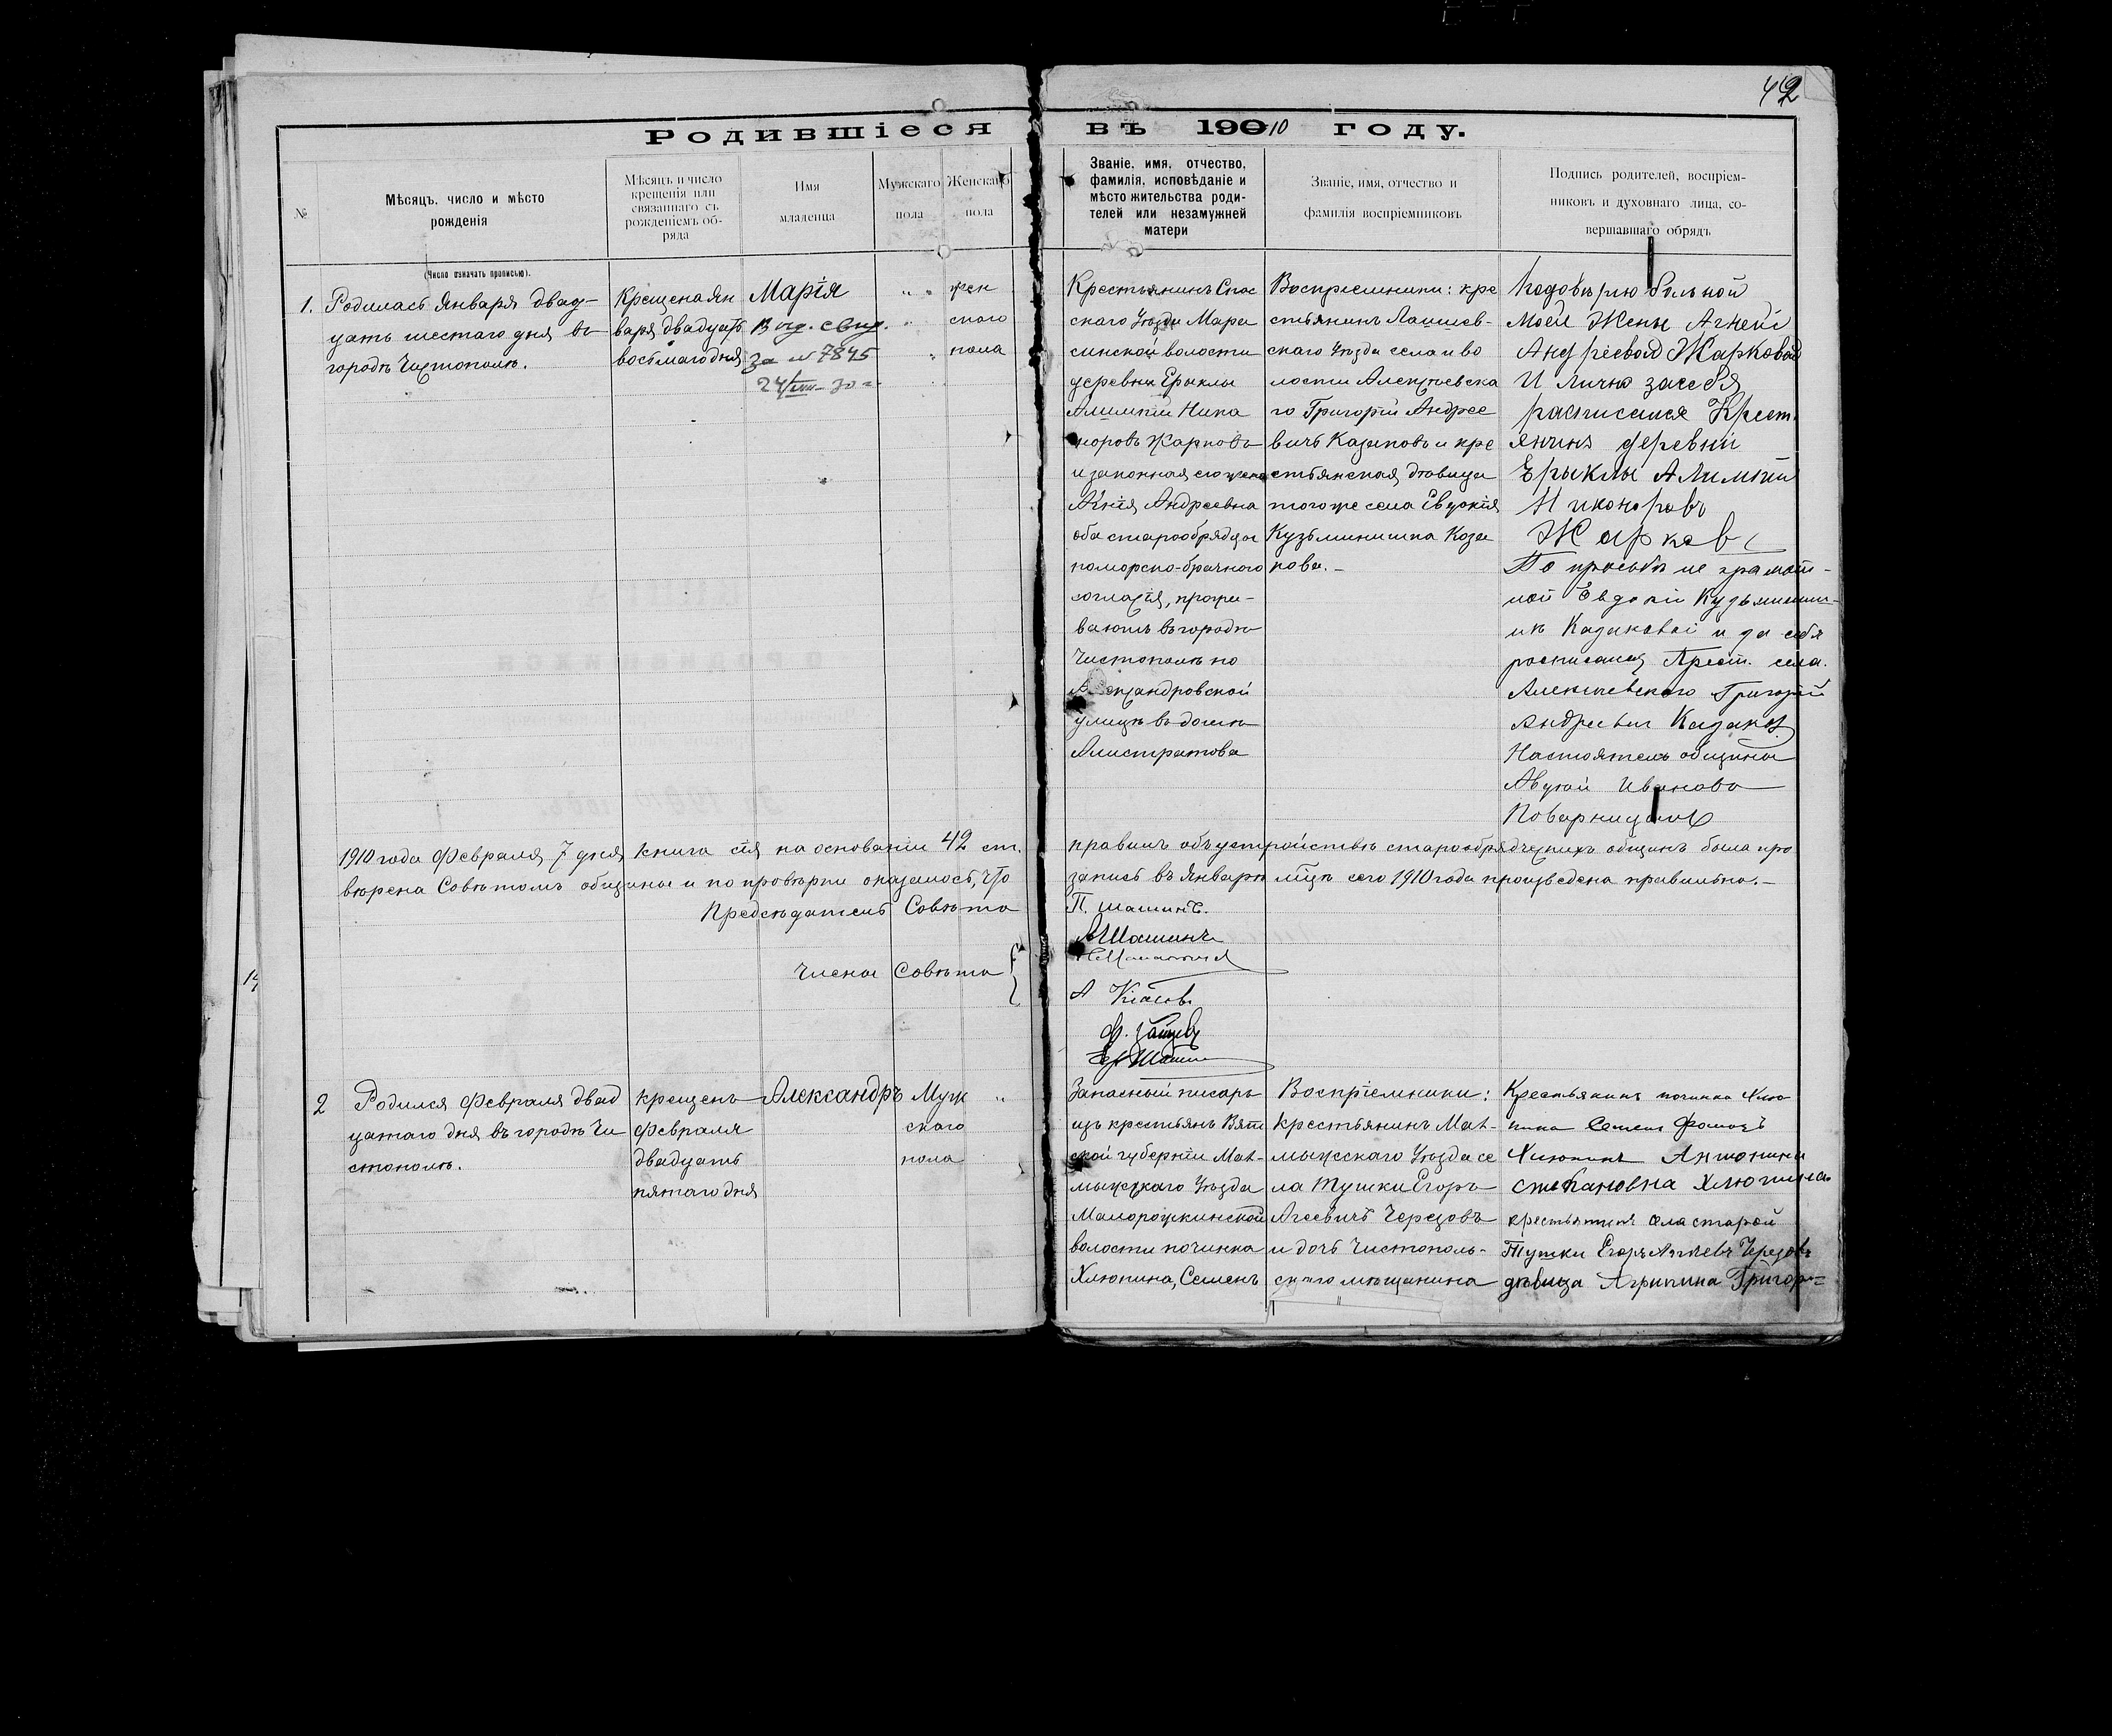 42
Родившіеся въ 190010 году.
№
Мѣсяцъ, число и мѣсто
рожденія
(Число означать прописью).
Мѣсяцъ и число
крещенія или
связаннаго съ
рожденіемъ об-
ряда
Имя
младенца
Мужскаго
пола
Женскаго
пола
Званіе, имя, отчество,
фамилія, исповѣданіе и
мѣсто жительства роди-
телей или незамужней
матери
Званіе, имя, отчество и
фамилія воспріемниковъ
Подпись родителей, воспріем-
никовъ и духовнаго лица, со-
вершавшаго обрядъ
1.
Родилась Января двад-
цать шестаго дня въ
городѣ Чистополѣ.
Крещена Ян
варя двадцать
восьмаго дня
Марія
Выд. свид.
за № 7845
24/VIII-30 г.
жен
скаго
пола
Крестьянинъ Спас
скаго Уѣзда Мара
синской волости
деревни Ерыклы
Алимпій Ника
норовъ Жарковъ
и законная его жена
Агнія Андреевна
оба старообрядцы
поморско-брачнаго
согласія, прожи-
ваютъ въ городѣ
Чистополѣ по
Александровской
улицѣ въ домѣ
Алистратова
Воспріемники: кре
стьянинъ Лаишев-
скаго Уѣзда села и во
лости Алексѣевска
го Григорій Андрее
вичъ Казаковъ и кре
стьянская дѣвица
того же села Евдокія
Кузьминишна Каза
кова.-
Подовѣрію больной
Моей Жены Агнеи
Андріевой Жарковой
И лично засебя
расписался Крест.
янинъ деревни
Ерыклы Алимпій
Никоноровъ
Жарковъ
По просьбѣ не грамот-
ной Евдокіи Кузьминиш-
нѣ Казаковой и за себя
росписался Крест. села.
Алексѣевскаго Григорій
Андреевич Казаков
Настоятель общины
Авдей Иванова
Поварницынъ
1910 года Февраля 7 дня книга сія на основаніи 42 ст. правилъ объ устройствѣ старообрядческихъ общинъ была про
вѣрена Совѣтомъ общины и по провѣрки оказалось, что запись въ Январѣ мцѣ сего 1910 года произведена правильно.-
Предсѣдатель Совѣта П. Шашинъ.
Члены Совѣта
А Шашинъ
Ф. Зайцев
Шашин
2
Родился Февраля двад
цатаго дня въ городѣ Чи
стополѣ.
крещенъ
Февраля
двадцать
пятаго дня
Александръ
Муж
скаго
пола
Запасный писарь
изъ крестьянъ Вят
ской губерніи Мал-
мыжскаго Уѣзда
Малорожкинской
волости починка
Хлюпина, Семенъ
Воспріемники:
крестьянинъ Мал-
мыжскаго Уѣзда се
ла Тушки Егоръ
Агеевичъ Черезовъ
и дочь Чистополь-
скаго мѣщанина
Крестьянинъ починка Хлю
пина Семенъ Фомичъ
Хлюпинъ Антонина
степановна Хлюпина
крестьянинъ села старой
Тушки Егоръ Агѣевъ Черезовъ
дѣвица Агрипина Григорь=